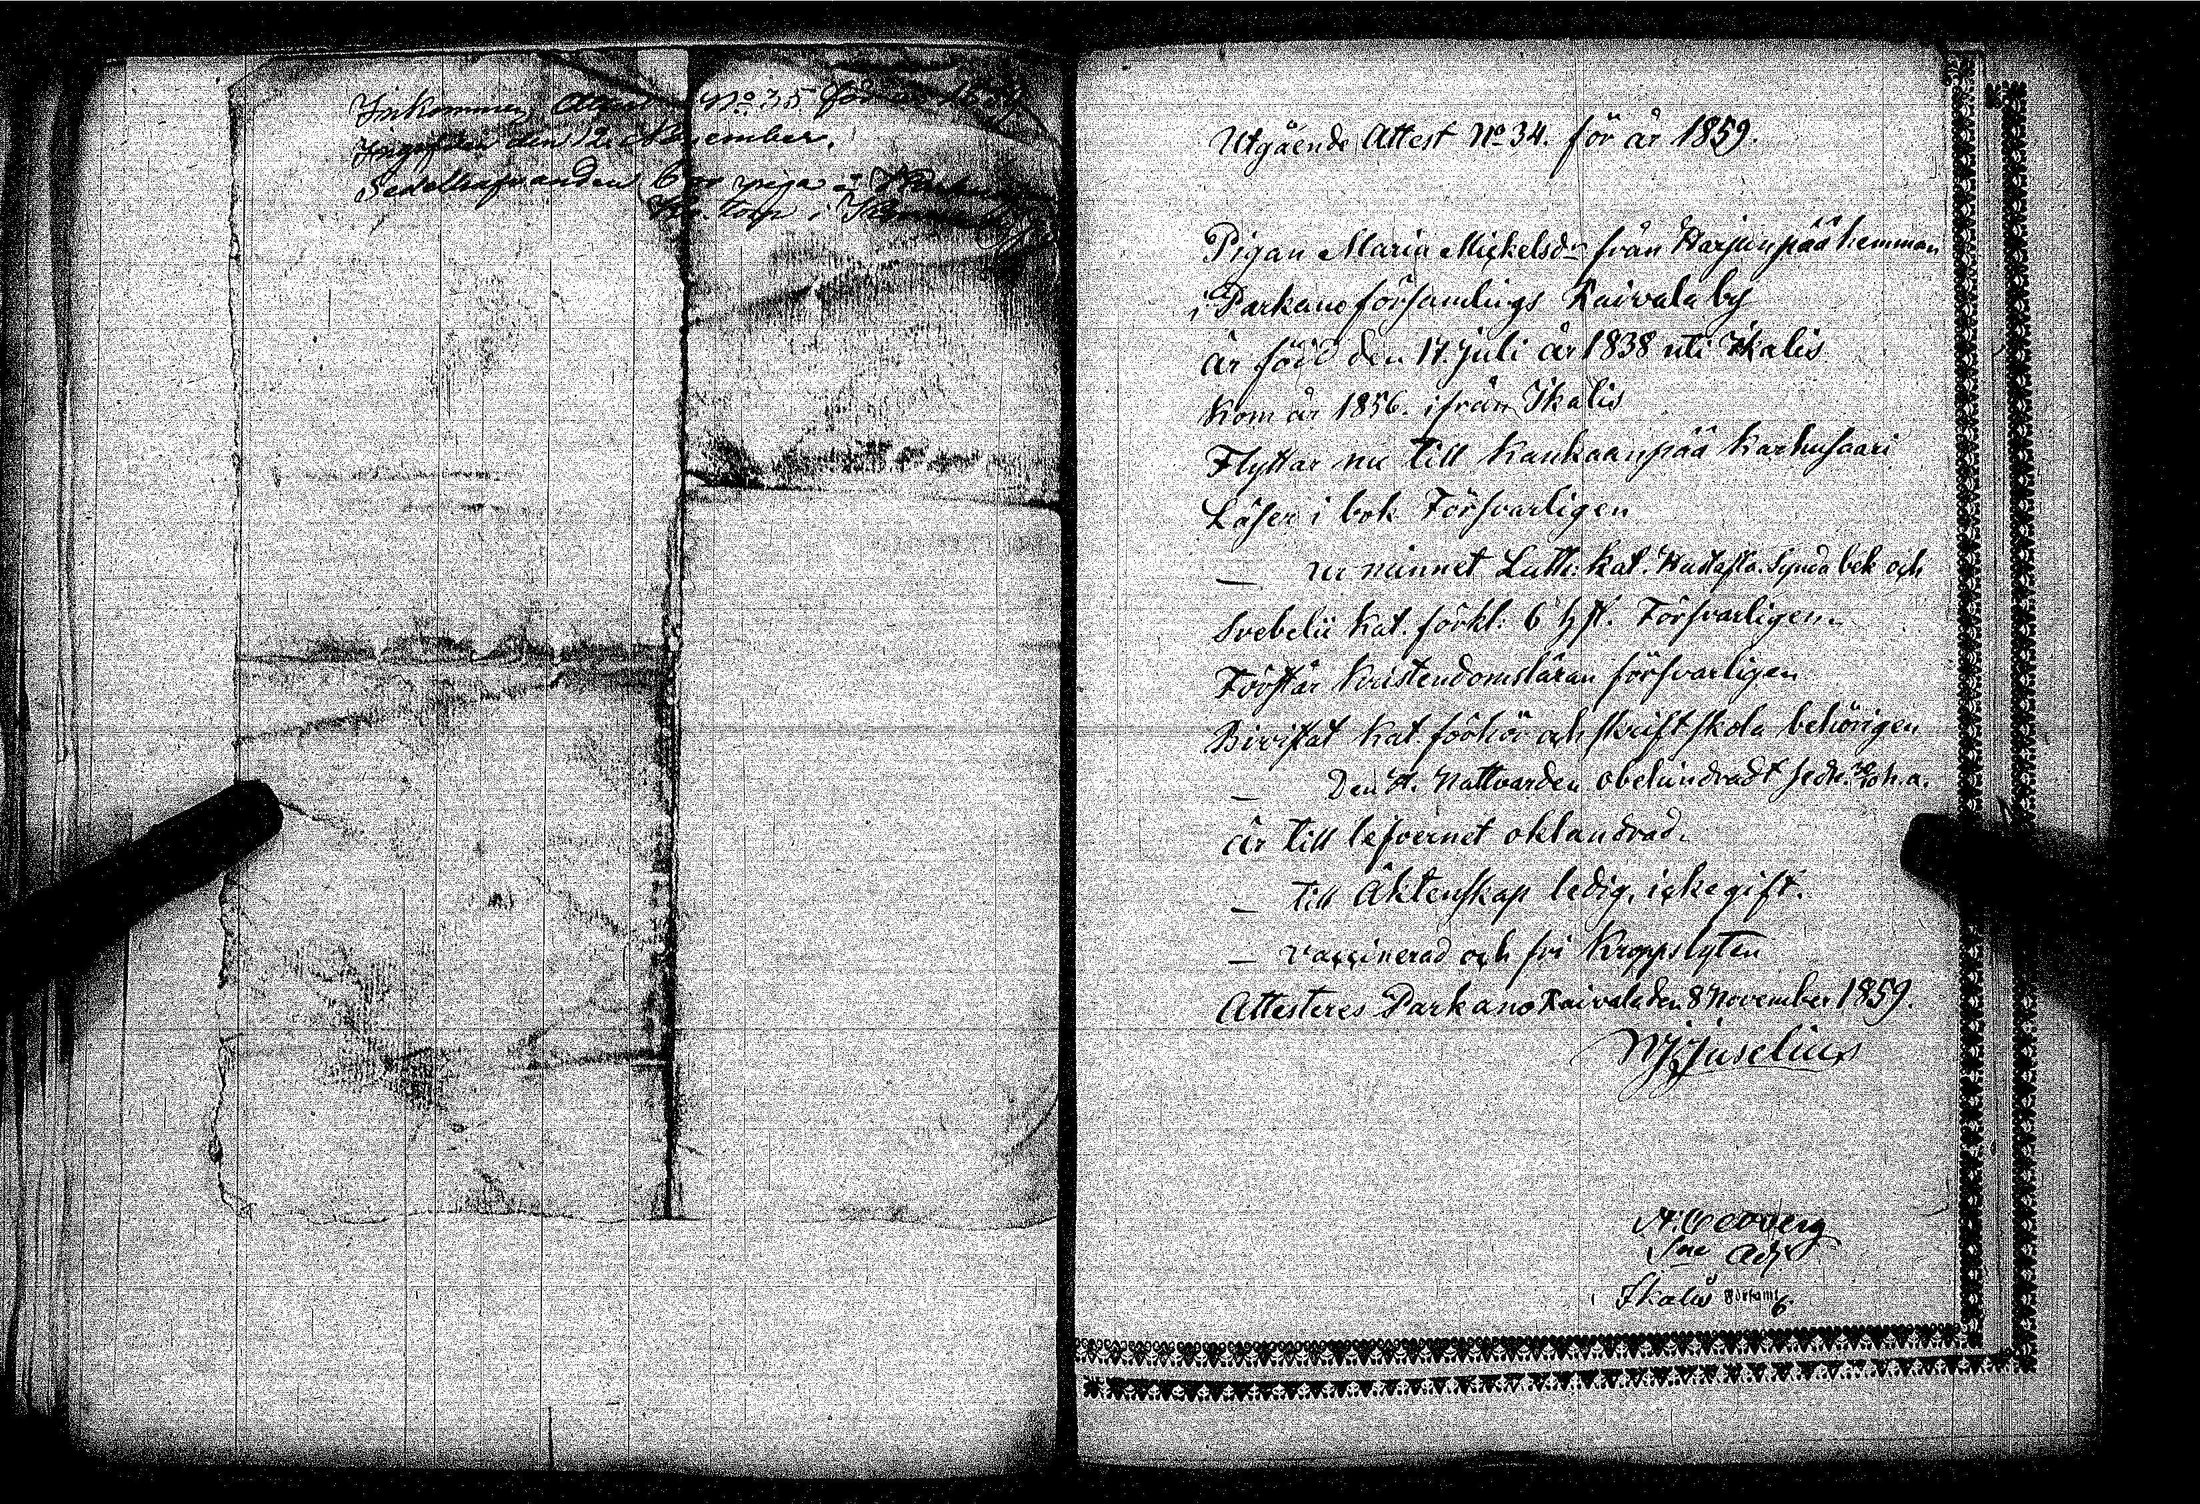 Inkommen Attest No 35 för år 1859
den 12 November.
Sedelhafvanden piga
torp i
Utgående Attest No 34. för år 1859.
Pigan Maria Mickelsdr från Harjunpää hemman
i Parkano församlings Kaivala by
är född den 17. Juli år 1838 uti Ikalis
Kom år 1856. ifrån Ikalis
Flyttar nu till Kankaanpää Karhusaari
Läser i bok Försvarligen
— ur minnet Luth: Kat. Hustafla. Synda bek och
Svebelii Kat. förkl: 6 hst. Försvarligen
Förstår Kristendomsläran försvarligen
Bivistat Kat. förhör och skriftskola behörigen
— Den H. Nattvarden obehindradt h.a.
är till lefvernet oklandrad.
— till Äktenskap ledig, icke gift.
— vaccinerad och fri Kroppslyten
Attesteres Parkano Kaivala den 8 November 1859.
Juselius
Adj
Ikalis Församl